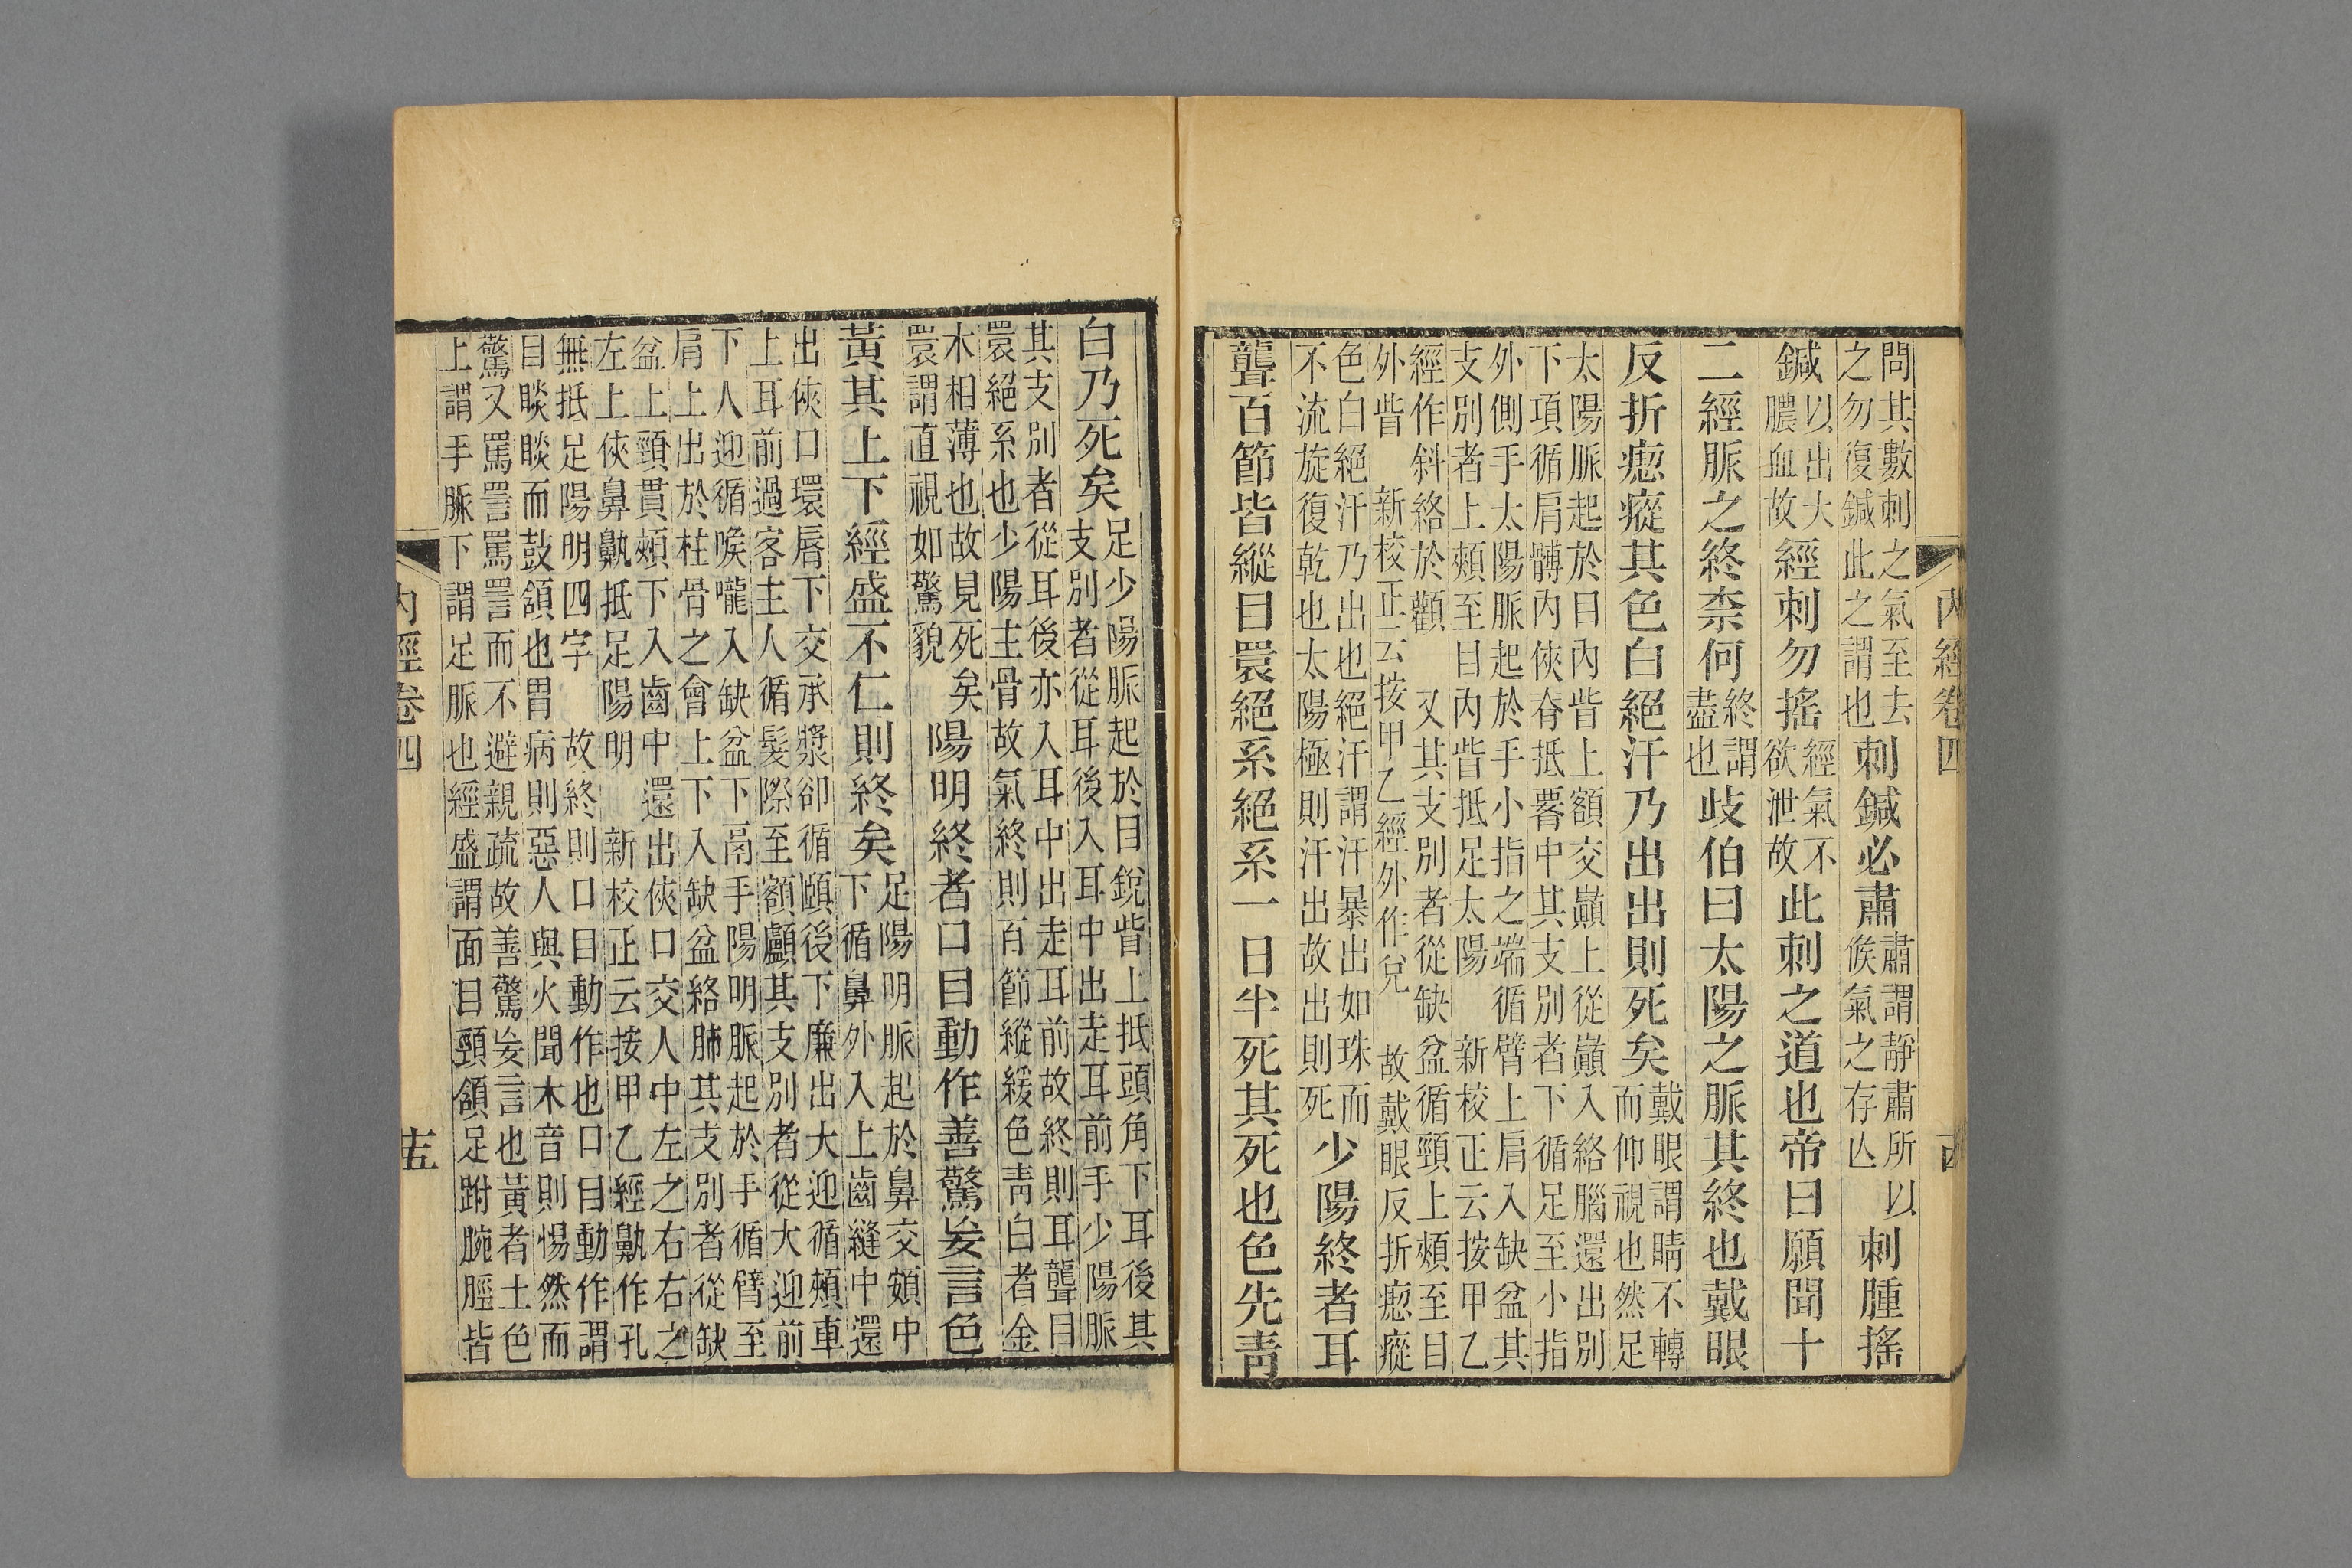 內經卷四
問其數刺之氣至去之勿復鍼此之謂也刺鍼必肅肅謂靜肅所以候氣之存亾刺腫搖
鍼以出大膿血故經刺勿搖經氣不欲泄故此刺之道也帝曰願聞十
二經脈之終柰何終謂盡也歧伯曰太陽之脈其終也戴眼
反折瘛瘲其色白絕汗乃出出則死矣戴眼謂睛不轉而仰視也然足
太陽脈起於目內眥上額交巓上從巓入絡腦還出別
下項循肩髆內俠脊抵𦝫中其支別者下循足至小指
外側手太陽脈起於手小指之端循臂上肩入缺盆其
支別者上頰至目內眥抵足太陽 新校正云按甲乙
經作斜絡於顴 又其支別者從缺盆循頸上頰至目
外眥 新校正云按甲乙經外作兌 故戴眼反折瘛瘲
色白絕汗乃出也絕汗謂汗暴出如珠而不流旋復乾也太陽極則汗出故出則死少陽終者耳
聾百節皆縱目睘絕系絕系一日半死其死也色先靑
白乃死矣足少陽脈起於目銳眥上抵頭角下耳後其支別者從耳後入耳中出走耳前手少陽脈
其支別者從耳後亦入耳中出走耳前故終則耳聾目
睘絕系也少陽主骨故氣終則百節縱緩色靑白者金
木相薄也故見死矣睘謂直視如驚貌陽明終者口目動作善驚妄言色
黃其上下經盛不仁則終矣足陽明脈起於鼻交頞中下循鼻外入上齒縫中還
出俠口環脣下交承漿卻循頤後下廉出大迎循頰車
上耳前過客主人循髮際至額顱其支別者從大迎前
下人迎循喉嚨入缺盆下鬲手陽明脈起於手循臂至
肩上出於柱骨之會上下入缺盆絡肺其支別者從缺
盆上頸貫頰下入齒中還出俠口交人中左之右右之
左上俠鼻鼽抵足陽明 新校正云按甲乙經鼽作孔
無抵足陽明四字 故終則口目動作也口目動作謂
目睒睒而鼓頷也胃病則惡人與火聞木音則惕然而
驚又罵詈罵詈而不避親疏故善驚妄言也黃者土色
上謂手脈下謂足脈也經盛謂面目頸頷足跗腕脛皆
內經卷四 十五